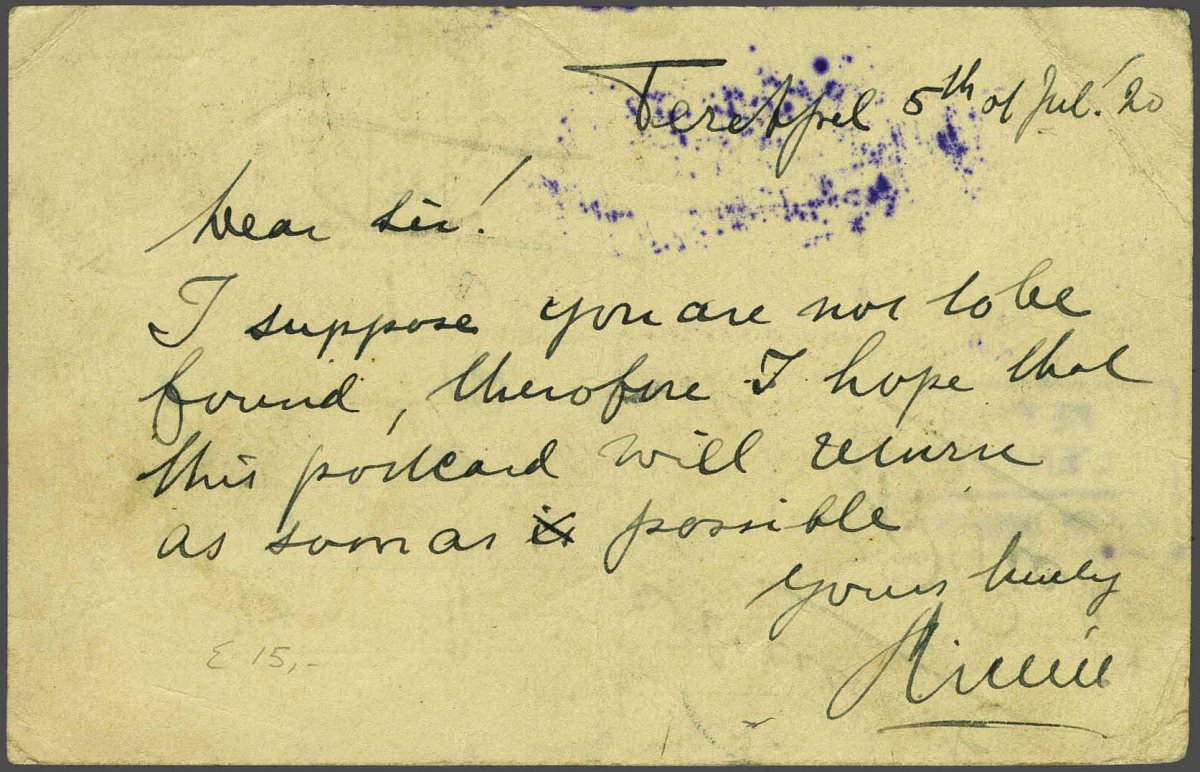 Ter Apel 5th of Jul. '20
Dear Sir!
I suppose you are not to be
found, therefore I hope that
this postcard will return
as soon as is possible
Yours truly
£ 15,-